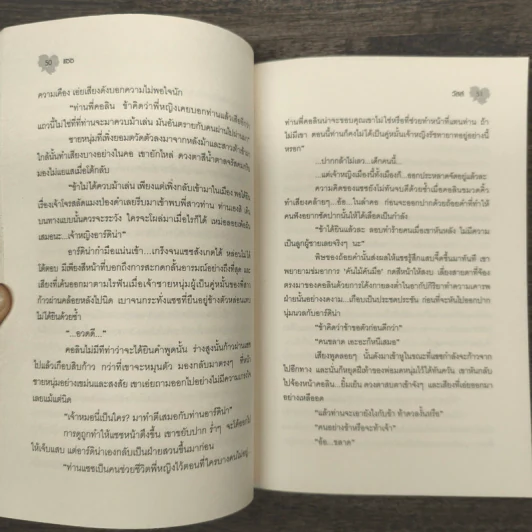 50 เซซ
ความเคือง เอ่ยเสียงดังบอกความไม่พอใจนัก
"ท่านพี่คอลิน ข้าคิดว่าพี่หญิงเคยบอกท่านแล้วเสียอีก
แถวนี้ไม่ใช่ที่ที่ท่านจะมาควบม้าเล่น มันอันตรายกับคนผ่านไปผ่านมา"
ชายหนุ่มที่เพิ่งยอมตวัดตัวลงมาจากหลังม้าและสาวเท้าเข้า
ใกล้นั้นทำเสียงบางอย่างในคอ เขายักไหล่ ดวงตาสีน้ำตาล
มองไม่แยแสเมื่อโต้กลับ
"ข้าไม่ได้ควบม้าเล่น เพียงแต่เพิ่งกลับเข้ามาในเมือง พอได้ยิน
เรื่องเจ้าโจรสลัดแมงป่องดำเลยรีบมาเข้าพบพี่สาวท่าน
บนทางแบบนั้นควรจะระวัง ใครจะโผล่มาเมื่อไรก็ได้
เสมอนะ...เจ้าหญิงอาร์ดิน่า"
อาร์ดิน่ากำมือแน่นเข้า...เกร็งจนแซซสังเกตได้ หล่อนไม่ได้
โต้ตอบ มีเพียงสีหน้าที่บ่งบอกถึงการสะกดกลั้นอารมณ์อย่างถึงที่สุด และ
เสียงที่เค้นออกมาตามไรฟันเมื่อเจ้าชายหนุ่มผู้เป็นคู่หมั้นของพี่สาว
ก้าวผ่านคล้อยหลังไปนิด เบาจนกระทั่งแซซที่ยืนอยู่ข้างตัวหล่อน
ไม่ได้ยินด้วยซ้ำ
"...อวดดี..."
คอลินไม่มีทีท่าว่าจะได้ยินคำพูดนั้น ร่างสูงนั้นก้าวผ่าน
ไปแล้วเกือบสิบก้าว กว่าที่เขาจะหมุนตัว มองกลับมาตรงๆ ที่
ชายหนุ่มอย่างเขม่นและสงสัย เขาเอ่ยถามออกไปอย่างไม่มีความเกรงใจ
เลยแม้แต่นิด
"เจ้าหมอนี่เป็นใคร? มาทำตีเสมอกับท่านอาร์ดิน่า"
การดูถูกทำให้แซซหน้าตึงขึ้น เขาขยับปาก ร่ำๆ จะโต้
ให้เจ็บแสบ แต่อาร์ดิน่าเองกลับเป็นฝ่ายสวนขึ้นมาก่อน
"ท่านแซซเป็นคนช่วยชีวิตพี่หญิงไว้ตอนที่ใครบางคนไม่อยู่
วัสส์ 51
ท่านพี่คอลินน่าจะขอบคุณเขาไม่ใช่หรือที่ช่วยทำหน้าที่แทนท่าน ถ้า
ไม่มีเขา ตอนนี้ท่านก็คงไม่ได้เป็นคู่หมั้นเจ้าหญิงรัชทายาทอยู่อย่างนี้
หรอก"
...ปากกล้าไม่เลว...เด็กคนนี้...
...แต่เจ้าหญิงเมืองนี้ทั้งเมืองก็...ออกประหลาดจัดอยู่แล้วละ
ความคิดของแซซยังไม่ทันจบดีด้วยซ้ำเมื่อคอลินขมวดคิ้ว
ทำเสียงคล้ายๆ...อ้อ...ในลำคอ ก่อนจะออกปากด้วยถ้อยคำที่ทำให้
คนฟังอยากซัดปากนั้นให้ได้เลือดเป็นกำลัง
"ข้าได้ยินแล้วละ ลอบทำร้ายคนเมื่อเขาหันหลัง ไม่มีความ
เป็นลูกผู้ชายเลยจริงๆ นะ"
พิษของถ้อยคำนั้นส่งผลให้แซซรู้สึกแสบจี๊ดขึ้นมาทันที เขา
พยายามข่มอาการ 'คันไม้คันมือ' กดสีหน้าให้สงบ เลี่ยงสายตาที่จ้อง
ตรงมาของคอลินด้วยการโค้งกายลงต่ำในอากัปกิริยาทำความเคารพ
ฝ่ายนั้นอย่างงดงาม...เกือบเป็นประชดประชัน ก่อนที่จะหันไปออกปาก
นุ่มนวลกับอาร์ดิน่า
"ข้าคิดว่าข้าขอตัวก่อนดีกว่า"
"คนฉลาด เลอะอะก็หนีเสมอ"
เสียงพูดลอยๆ นั้นดังมาเข้าหูในขณะที่แซซกำลังจะก้าวจาก
ไปอีกทาง และนั่นก็หยุดฝีเท้าของพ่อมดหนุ่มไว้ได้ทันควัน เขาหันกลับ
ไปจ้องหน้าคอลิน...ยิ้มเย็น ดวงตาสบตาเข้าจังๆ และเสียงที่เอ่ยออกมา
อย่างเหลืออด
"แล้วท่านจะเอายังไงกับข้า ท้าดวลงั้นหรือ"
"คนอย่างข้าหรือจะท้าเจ้า"
"อ้อ...ขลาด"